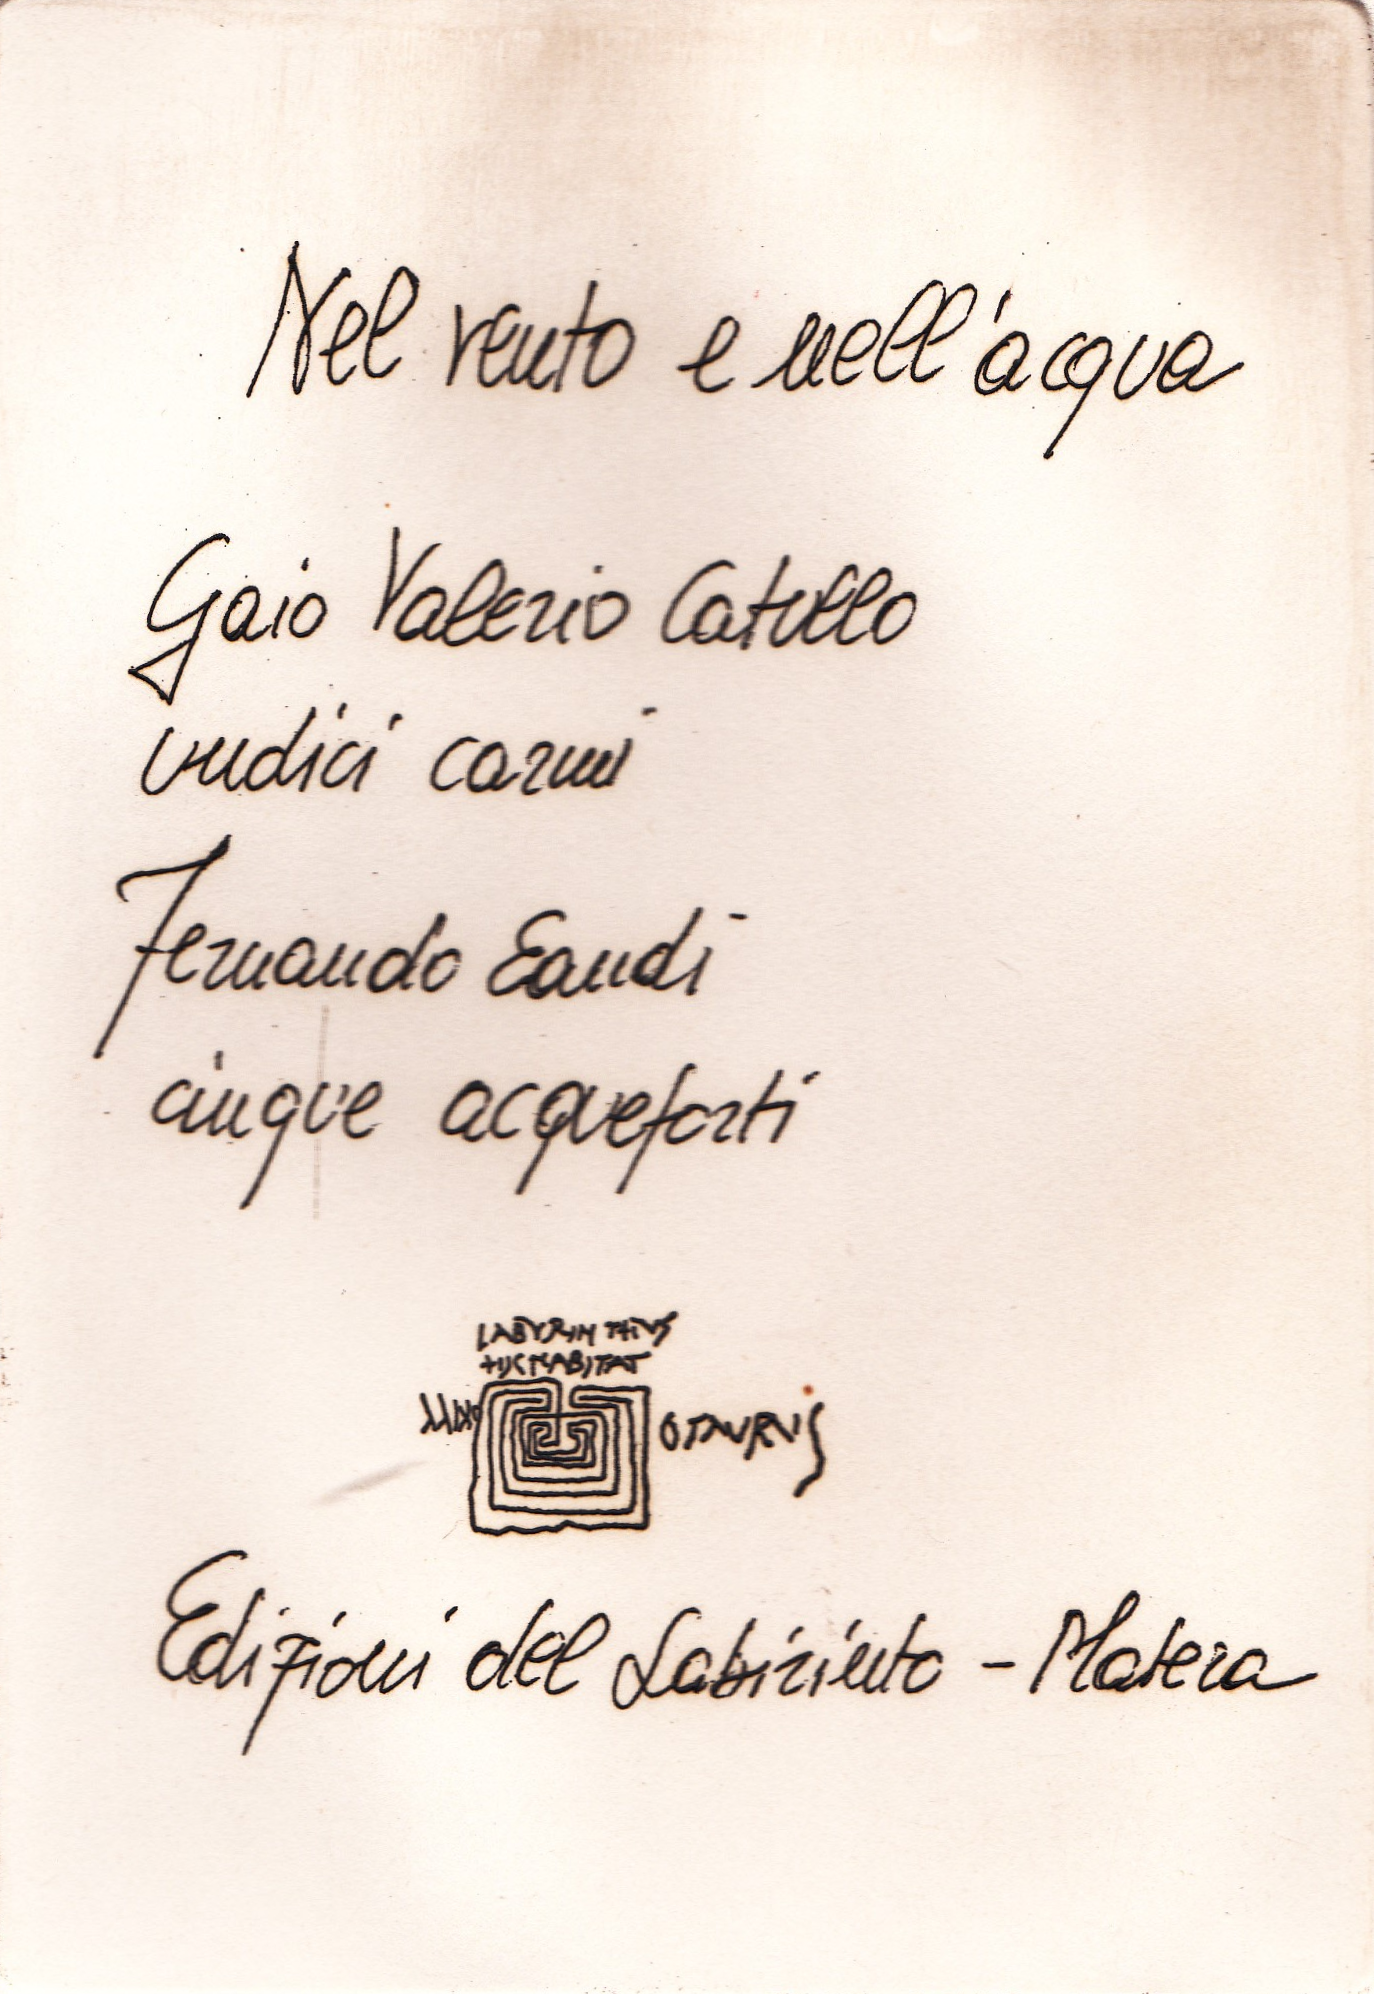 Nel vento e nell'acqua
Gaio Valerio Catullo
undici carmi
Fernando Eandi
cinque acqueforti
LABYRINTHUS
HIC HABITAT
MINOTAURUS
Edizioni del Labirinto - Matera